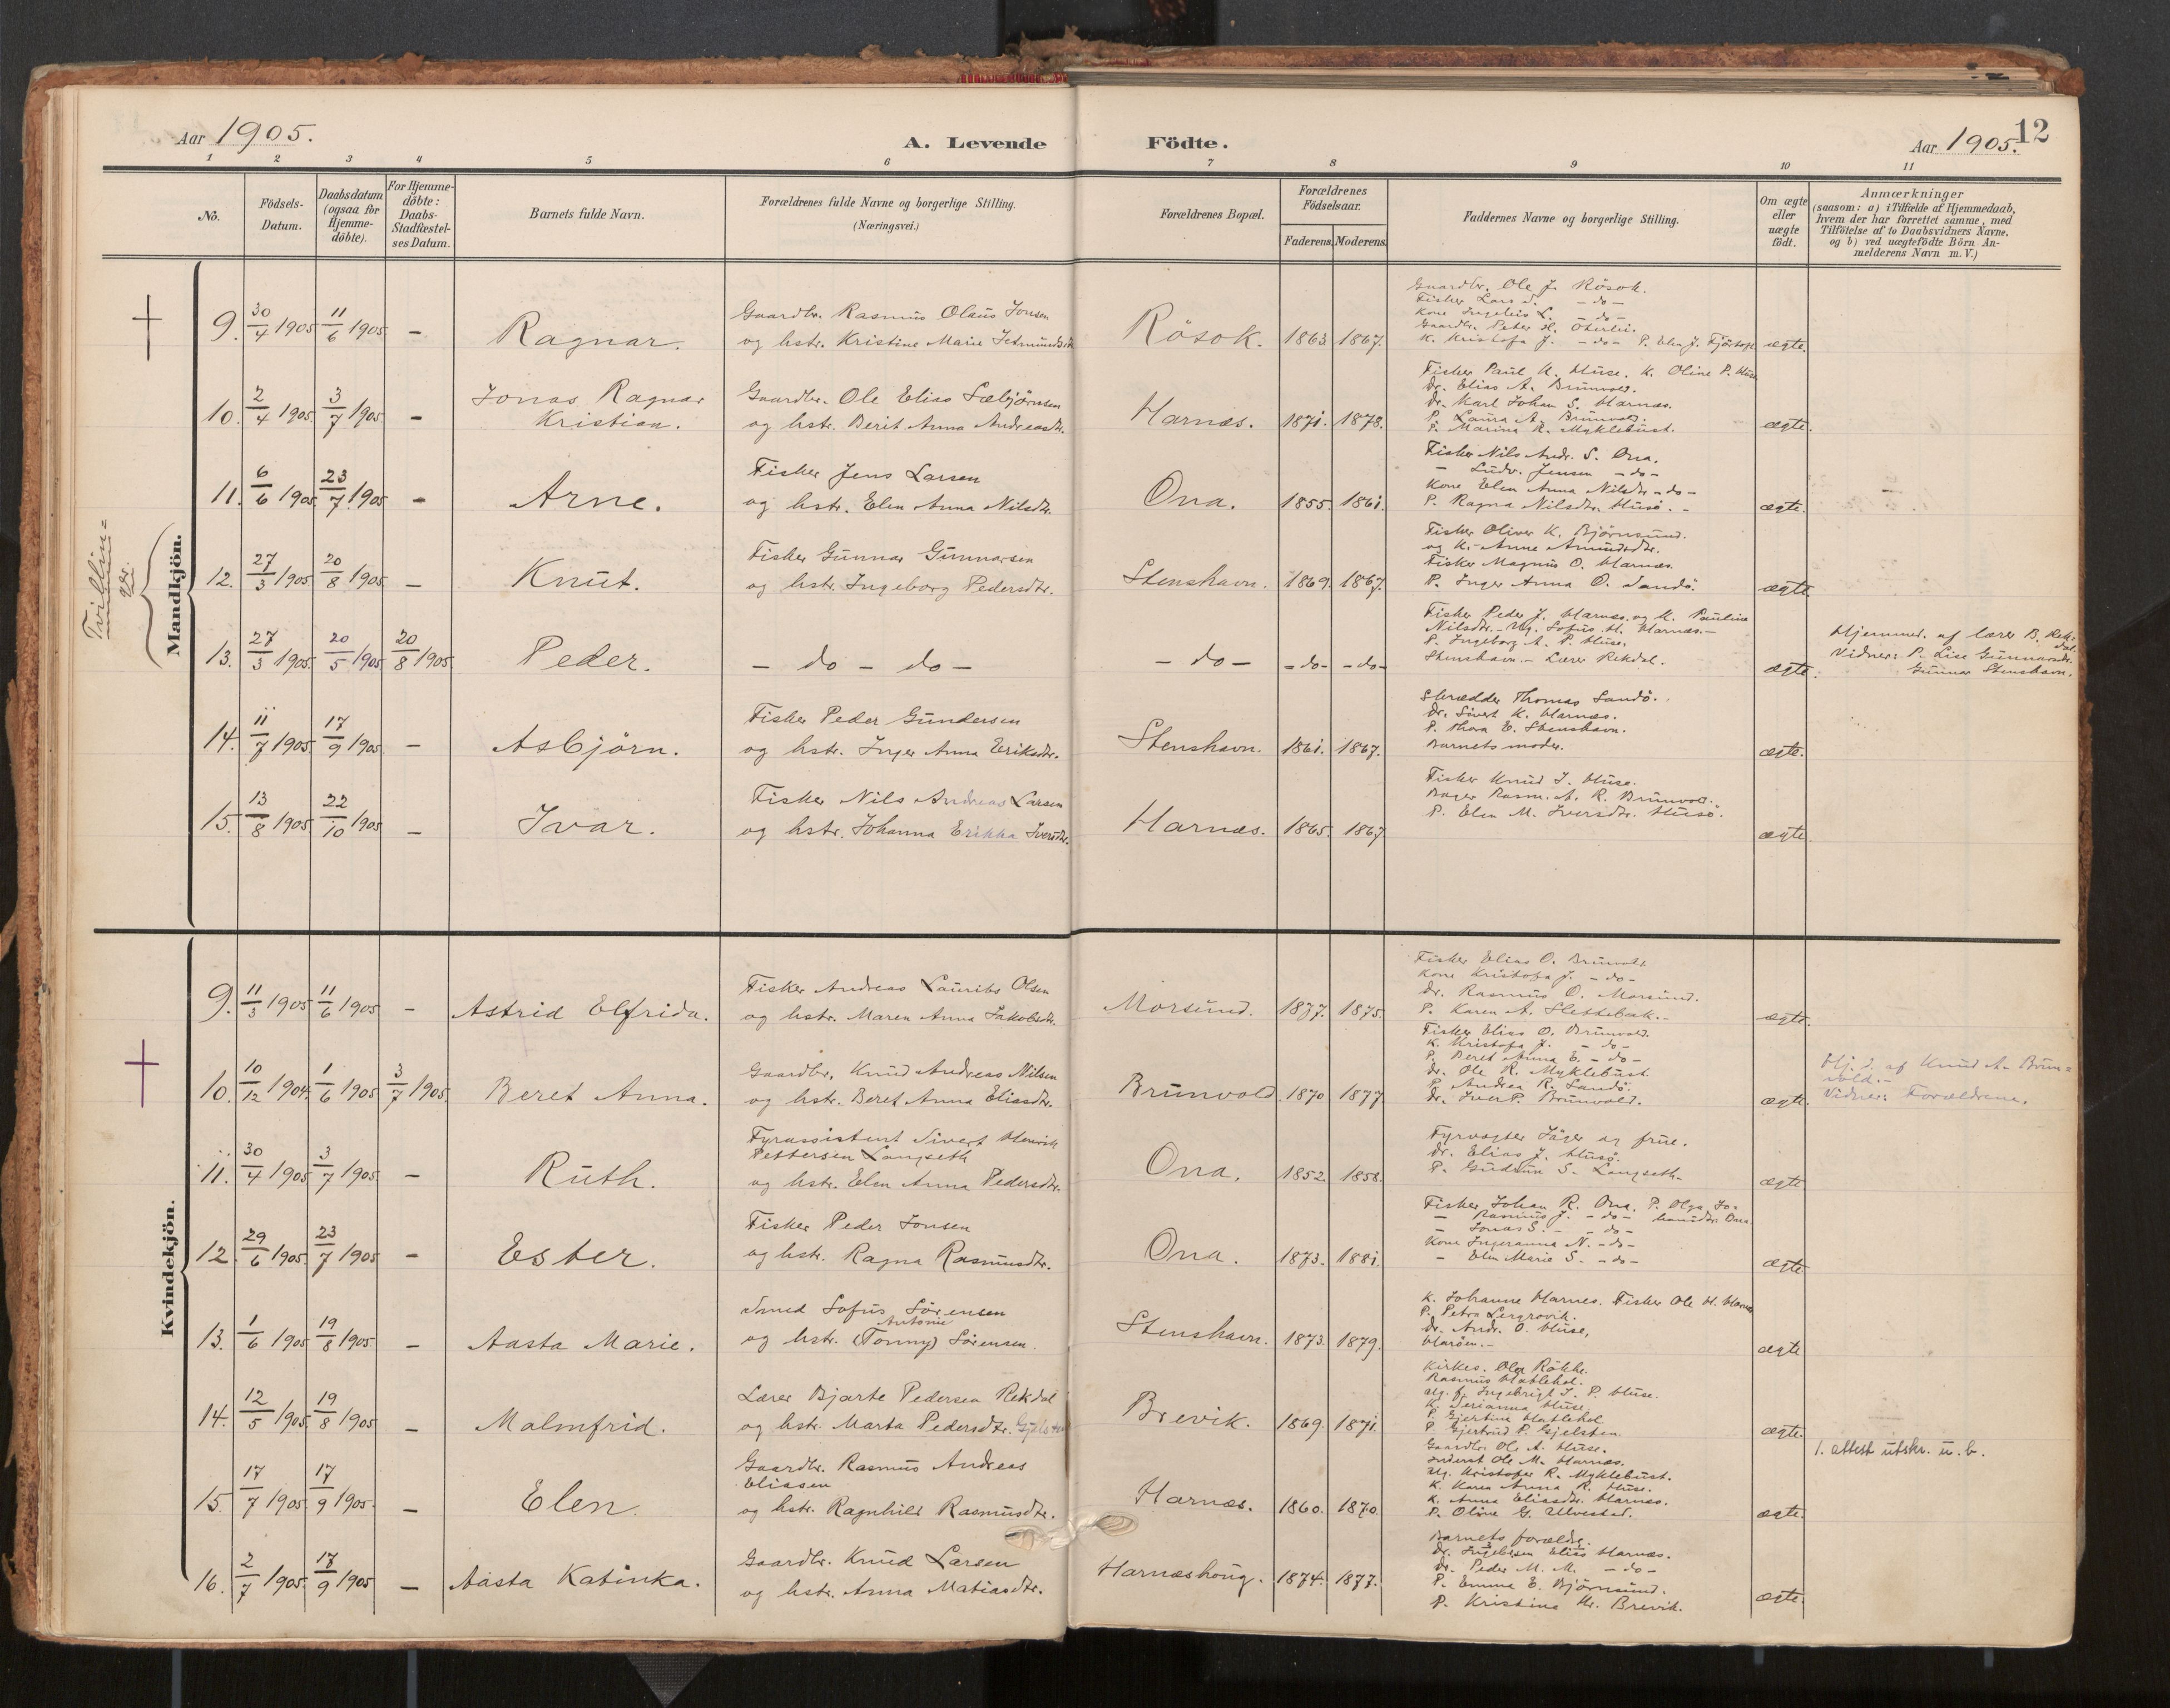 Aar 1905.
A. Levende Födte.
Aar 1905.
12
1 2 3 4 5 6 7 8 9 10 11
No.
Födsels-Datum.
Daabsdatum (ogsaa for Hjemme-döbte).
For Hjemme-döbte: Daabs-Stadfæstel-ses Datum.
Barnets fulde Navn.
Forældrenes fulde Navne og borgerlige Stilling.
(Næringsvei.)
Forældrenes Bopæl.
Forældrenes Födselsaar.
Faderens. Moderens.
Faddernes Navne og borgerlige Stilling.
Om ægte eller uægte födt.
Anmærkninger
(saasom: a) i Tilfælde af Hjemmedaab,
hvem der har forrettet samme, med
Tilföielse af to Daabsvidners Navne,
og b) ved uægtefödte Börn An-
melderens Navn m. V.)
Mandkjön.
Tvillin=
gr.
9. 30/4 1905 11/6 1905 - Ragnar.
Gaardbr. Rasmus Olaus Jonsen
og hstr. Kristine Marie
Rösok. 1863 1867.
Gaardbr. Ole J. Rösok.
Fisker Lars S. - do -
Kone L. - do -
Gaardbr. Peter H. Oterlei.
K. Kristofa J. - do - P. Elen J. Fjörtoft
ægte.
10. 2/4 1905 3/7 1905 - Jonas Ragnar
Kristian.
Gaardbr. Ole Elias Sæbjörnsen
og hstr. Berit Anna Andreasdtr.
Harnæs. 1871. 1878.
Fisker Paul K. Huse. K. Oline P. Huse
Dr. Elias A. Brunvold.
Dr. Karl Johan S. Harnæs.
P. Laura A. Brunvold.
P. Marina K. Myklebust.
ægte.
11. 6/6 1905 23/7 1905 - Arne.
Fisker Jens Larsen
og hstr. Elen Anna Nilsdtr.
Ona. 1855. 1861.
Fisker Nils Andr. S. Ona.
- Ludv. Jensen - do -
Kone Elen Anna Nilsdtr - do -
P. Ragna Nilsdtr. Husö. -
ægte.
12. 27/3 1905 20/8 1905 - Knut.
Fisker Gunnar Gunnarsen
og hstr. Ingeborg Pedersdtr.
Stenshavn. 1869. 1867.
Fisker Oliver K. Björnsund.
og K. Anne Amundsdtr.
Fisker Magnus O. Harnæs.
P. Inger Anna O. Sandö.
ægte
13. 27/3 1905 20/5 1905 20/8 1905 Peder.
- do - do -
- do - - do - - do -
Fisker Peder J. Harnæs, og K. Pauline
Nilsdtr. - Ug. Sofus H. Harnæs. -
P. Ingeborg A. P. Huse,
Stenshavn. - Lærer Rekdal.
ægte.
Hjemmed. af lærer B. Rek-
dal.
Vidner: P. Lise Gunnarsdtr.
Gunnar Stenshavn.
14. 11/7 1905 17/9 1905 - Asbjörn.
Fisker Peder Gundersen
og hstr. Inger Anna Eriksdtr.
Stenshavn. 1861. 1867.
Skrædder Thomas Sandö.
Dr. Sivert K. Harnæs.
P. Thora E. Stenshavn.
Barnets moder.
ægte.
15. 13/8 1905 22/10 1905 - Ivar.
Fisker Nils Andreas Larsen
og hstr. Johanna Erikka Iversdtr.
Harnæs. 1865. 1867
Fisker Knud I. Huse.
Bager Rasm. A. R. Brunvold.
P. Elen M. Iversdtr. Husö.
ægte.
Kvindekjön.
9. 11/3 1905 11/6 1905 - Astrid Elfrida.
Fisker Andreas Laurits Olsen
og hstr. Maren Anna Jakobsdtr.
Morsund. 1877. 1875.
Fisker Elias O. Brunvold.
Kone Kristofa J. - do -
Dr. Rasmus O. Morsund.
P. Karen A. Slettebak. -
ægte.
10. 10/12 1904. 1/6 1905 3/7 1905. Beret Anna.
Gaardbr. Knud Andreas Nilsen
og hstr. Beret Anna Eliasdtr.
Brunvold. 1870 1877
Fisker Elias O. Brunvold.
K. Kristofa J. - do -
P. Beret Anna E. - do -
Dr. Ole R. Myklebust
P. Andrea R. Sandö.
Dr. Iver P. Brunvold.
ægte.
Hj. d. af Knud A. Brun=
vold. -
Vidner: Forældrene.
11. 30/4 1905 3/7 1905 - Ruth.
Fyrassistent Sivert Henrik
Pettersen Langseth
og hstr. Elen Anna Pedersdtr.
Ona. 1852. 1858.
Fyrvogter Jäger og frue.
Dr. Elias J. Husö.
P. Gudrun S. Langseth -
ægte
12. 29/6 1905. 23/7 1905 - Ester.
Fisker Peder Jonsen
og hstr. Ragna Rasmusdtr.
Ona. 1873. 1881.
Fisker Johan R. Ona. P. Olga Jo-
- Rasmus J. - do - hansdtr. Ona
- Jonas S. - - do -
Kone Ingeranna N. - do -
- Elen Marie S. - do -
ægte
13. 1/6 1905 19/8 1905 - Aasta Marie.
Smed Sofus Sörensen
Antonie
og hstr. (Tonny) Sörensen.
Stenshavn. 1873. 1879.
K. Johanne Harnes. Fisker Ole H. Harnæs
P. Petra Lergrovik.
Dr. Andr. O. Huse,
Haröen. -
ægte
14. 12/5 1905 19/8 1905 - Malmfrid.
Lærer Bjarte Pedersen Rekdal
og hstr. Marta Pedersdtr. Gjelsten
Brevik. 1869. 1871.
Kirkes. Ola Rökke.
Rasmus Hatlehol.
Ug. f. Ingebrigt I. P. Huse.
K. Serianna Huse.
P. Gjertine Hatlehol
P. Gjertrud P. Gjelsten.
ægte.
1. attest utskr. u. b.
15. 17/7 1905 17/9 1905 - Elen.
Gaardbr. Rasmus Andreas
Eliasen
og hstr. Ragnhild Rasmusdtr.
Harnæs. 1860. 1870.
Gaardbr. Ole A. Huse.
Inderst Ole M. Harnæs.
Ug. Kristofer R. Myklebust.
K. Karen Anna R. Huse.
K. Anna Eliasdtr. Harnæs.
P. Oline G. Ulvestad.
ægte.
16. 2/7 1905. 17/9 1905 - Aasta Katinka.
Gaardbr. Knud Larsen
og hstr. Anna Matiasdtr.
Harnæshoug. 1874. 1877.
Barnets forældre.
Dr. Elias Harnæs.
Dr. Peder M. M. - do -
P. Emma E. Björnsund.
P. Kristine Kr. Brevik.
ægte.